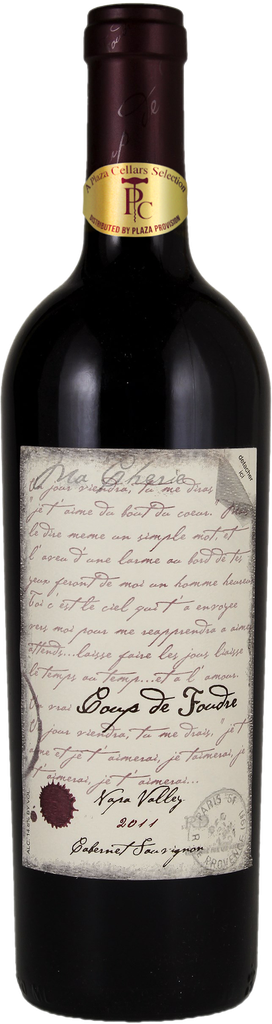 A Plaza Cellars Selection
PC
DISTRIBUTED BY PLAZA PROVISION
Ma Cherie
détacher
ici
Un jour viendra, tu me diras
"je t'aime du bout du coeur.
le dire meme un simple mot, et
l'aveu d'une larme au bord de tes
yeux feront de moi un homme heureux
Toi c'est le ciel qui t'a envoyee
vers moi pour me reapprendre a aimer
attends...laisse faire les jours laisse
le temps au temps...et a l'amour.
Un vrai Coup de Foudre
Un jour viendra, tu me dirais, "je t'
aime et je t'aimerai, je t'aimerai, je
t'aimerai, je t'aimerai...
Napa Valley
2011
Cabernet Sauvignon
PARIS
PROVENCE